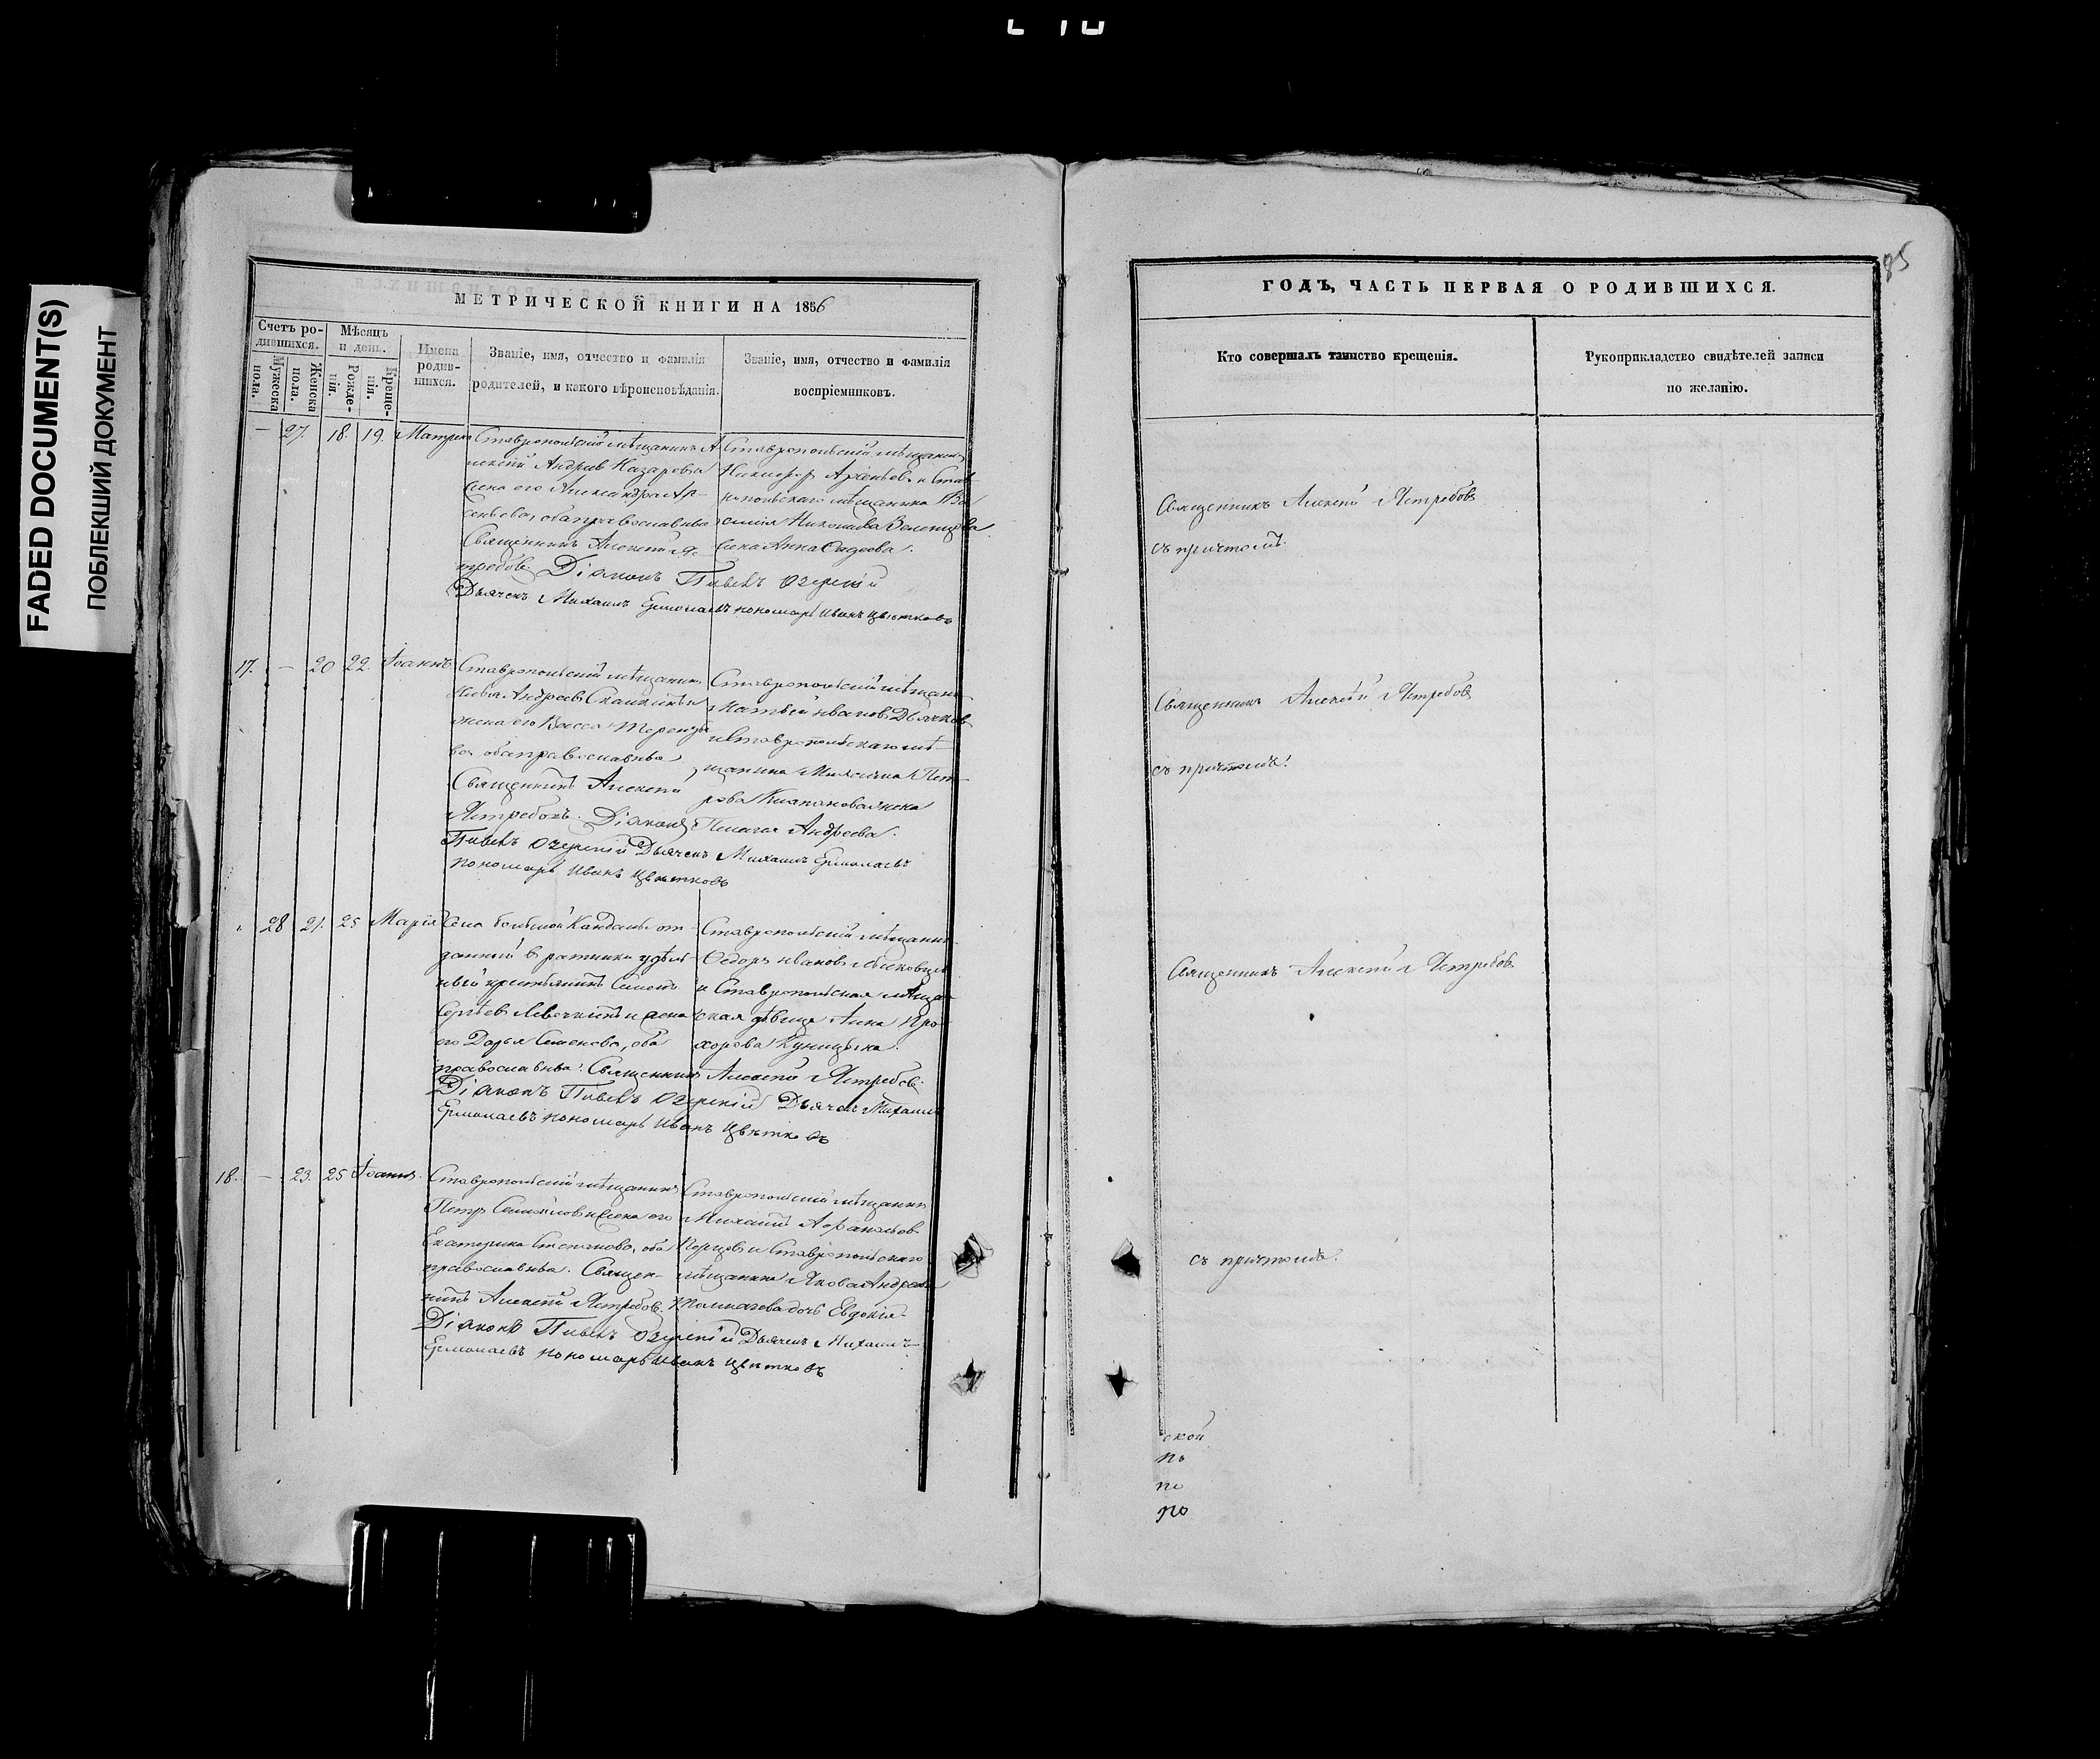 FADED DOCUMENT(S)
ПОБЛЕКШИЙ ДОКУМЕНТ
МЕТРИЧЕСКОЙ КНИГИ НА 1856
Счетъ ро-
дившихся.
Мужеска
пола.
Женска
пола.
Мѣсяцъ
и день.
Рожде-
нія.
Креще-
нія.
Имена
родив-
шихся.
Званіе, имя, отчество и фамилія
родителей, и какого вѣроисповѣданія.
Званіе, имя, отчество и фамилія
воспріемниковъ.
— 27. 18. 19.
Ставропольскій мѣщанинъ
Андрей Назаровъ
жена его Александра Ар-
сеньева, оба православные
Священникъ Алексѣй Яс-
требовъ Діаконъ Павелъ Озерскій
Дьячекъ Михаилъ Ермолаевъ пономарь Иванъ Цвѣтковъ
Ставропольскій мѣщанинъ
Никифоръ
мѣщанина Ва-
силія Николаева
жена Анна
17. — 20 22. Іоаннъ
Ставропольскій мѣщанинъ
Илья Андреевъ
жена его Васса Терентье-
ва, оба православные
Священникъ Алексѣй
Ястребовъ. Діаконъ
Павелъ Озерскій Дьячекъ Михаилъ Ермолаевъ
пономарь Иванъ Цвѣтковъ
Ставропольскій мѣщан
Матвѣй Ивановъ Дьячков
и Ставропольскаго мѣ-
щанина Пет-
рова жена
Пелагея Андреева.
28 21. 25 Марія
Села большой Кандалы от-
данный в ратники удѣль-
ный крестьянинъ Семенъ
Сергѣевъ и жена
его Дарья Семенова, оба
православные. Священникъ Алексѣй Ястребовъ
Діаконъ Павелъ Озерскій Дьячекъ Михаилъ
Ермолаевъ пономарь Иванъ Цвѣтковъ
Ставропольскій мѣщанинъ
Ѳедоръ Ивановъ
и Ставропольская мѣщан
ская дѣвица Анна Про-
хорова Куницына.
18. — 23. 25 Іоаннъ.
Ставропольскій мѣщанинъ
Петръ Самойловъ и жена его
Екатерина Степанова, оба
православные. Священ-
никъ Алексѣй Ястребовъ.
Діаконъ Павелъ Озерскій Дьячекъ Михаилъ
Ермолаевъ пономарь Иванъ Цвѣтковъ
Ставропольскій мѣщанинъ
Михаилъ Афанасьевъ
и Ставропольскаго
мѣщанина Якова Андреева
Толмачева дочь Евдокія.
85
ГОДЪ, ЧАСТЬ ПЕРВАЯ О РОДИВШИХСЯ.
Кто совершалъ таинство крещенія.
Рукоприкладство свидѣтелей записи
по желанію.
Священникъ Алексѣй Ястребовъ
съ причтомъ.
Священникъ Алексѣй Ястребовъ
съ причтомъ.
Священникъ Алексѣй Ястребовъ
съ причтомъ.
ской
по
по
по